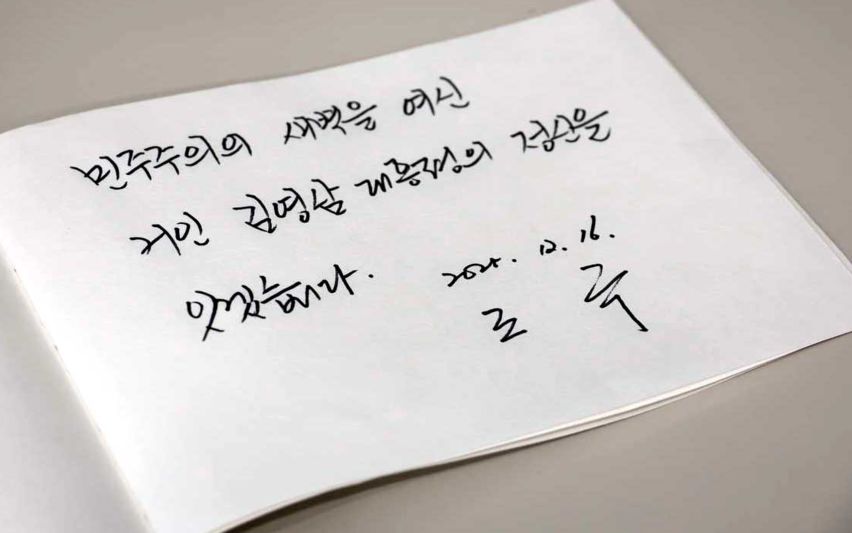 민주주의의 새벽을 여신
거인 김영삼 대통령의 정신을
잇겠습니다.
2025. 12. 16.
조 국